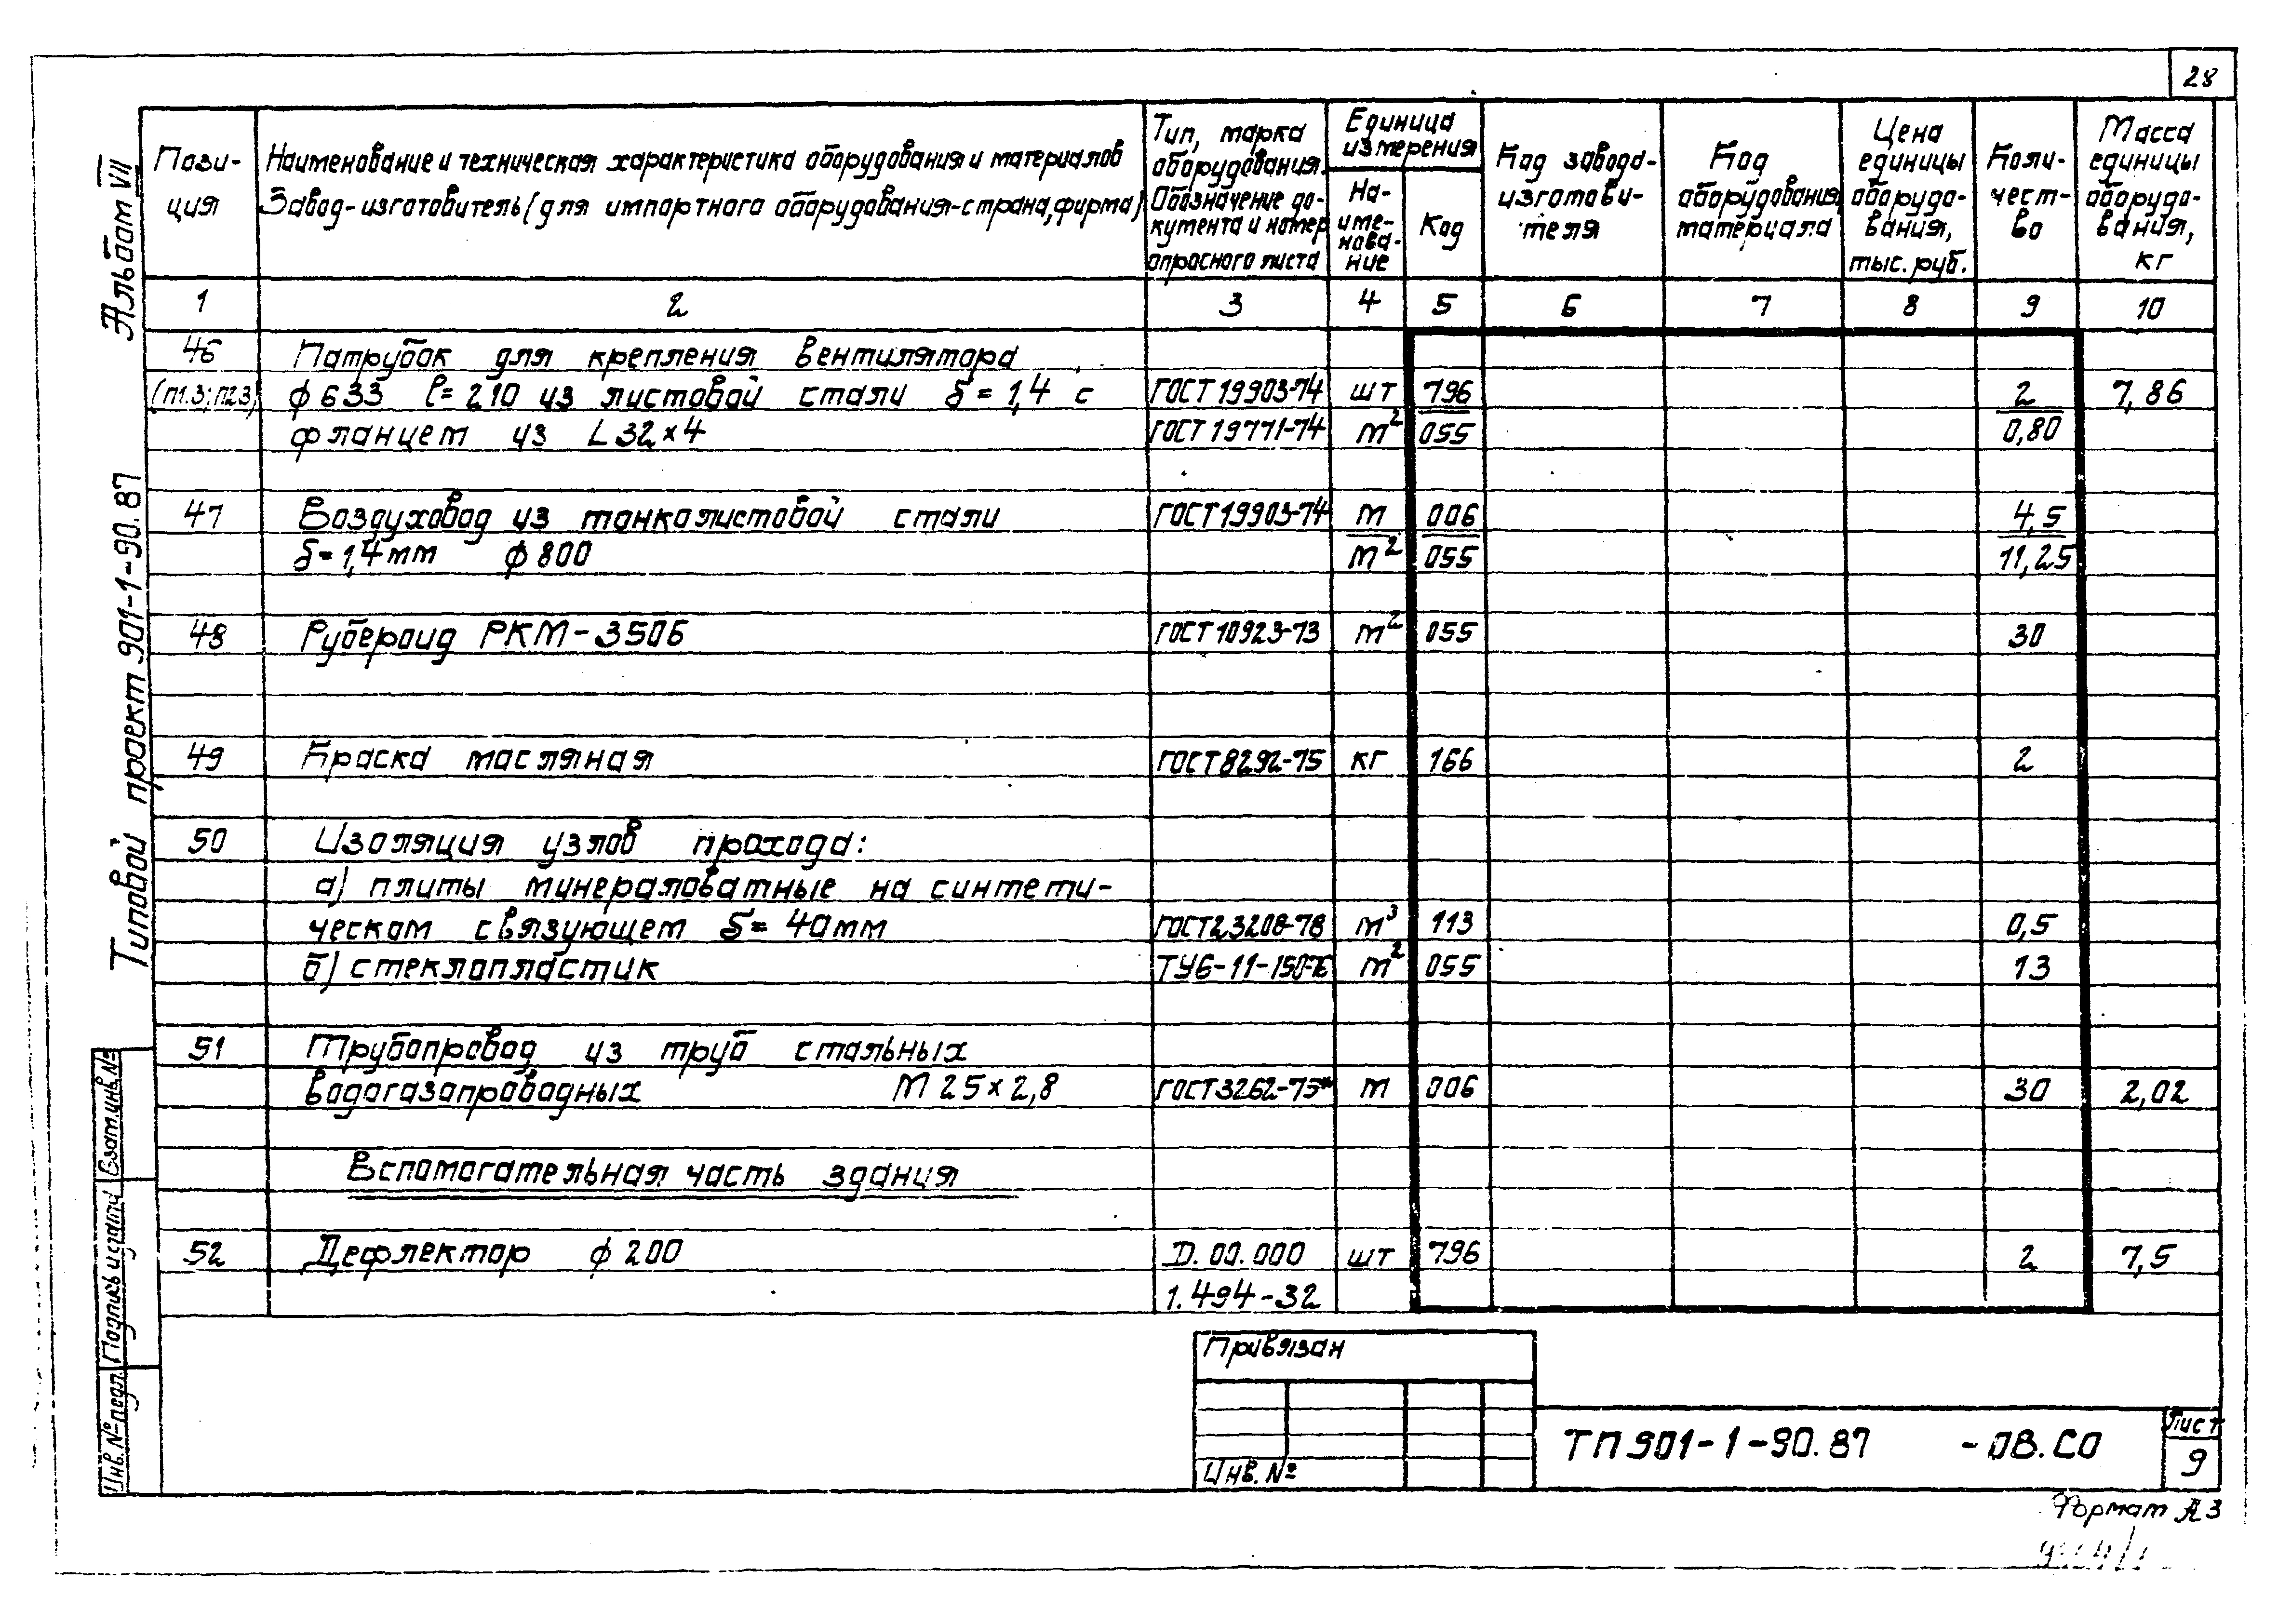 28
Пози-
ция
Наименование и техническая характеристика оборудования и материалов
Завод-изготовитель (для импортного оборудования-страна, фирма)
Тип, марка
оборудования.
Обозначение до-
кумента и номер
опросного листа
Единица
измерения
На-
име-
нова-
ние
Код
Код завода-
изготови-
теля
Код
оборудования,
материала
Цена
единицы
оборудо-
вания,
тыс. руб.
Коли-
чест-
во
Масса
единицы
оборудо-
вания,
кг
1 2 3 4 5 6 7 8 9 10
46 Патрубок для крепления вентилятора
(П1.3; П2.3) ф 633 l= 210 из листовой стали δ= 1,4 с ГОСТ 19903-74 шт 796 2 7,86
фланцем из L 32×4 ГОСТ 19771-74 м² 055 0,80
47 Воздуховод из тонколистовой стали ГОСТ 19903-74 м 006 4,5
δ= 1,4 мм ф 800 м² 055 11,25
48 Рубероид РКМ-350б ГОСТ 10923-73 м² 055 30
49 Краска масляная ГОСТ 8292-75 кг 166 2
50 Изоляция узлов прохода:
а) плиты минераловатные на синтети-
ческом связующем δ= 40мм ГОСТ 23208-78 м³ 113 0,5
б) стеклопластик ТУ6-11-150-76 м² 055 13
51 Трубопровод из труб стальных
водогазопроводных М 25×2,8 ГОСТ 3262-75* м 006 30 2,02
Вспомогательная часть здания
52 Дефлектор ф 200 D. 00. 000 шт 796 2 7,5
1. 494-32
Альбом VII
Типовой проект 901-1-90.87
Взам. инв. №
Подпись и дата
Инв. № подл.
Привязан
Инв. №
ТП 901-1-90.87 -ОВ.СО
Лист
9
Формат А3